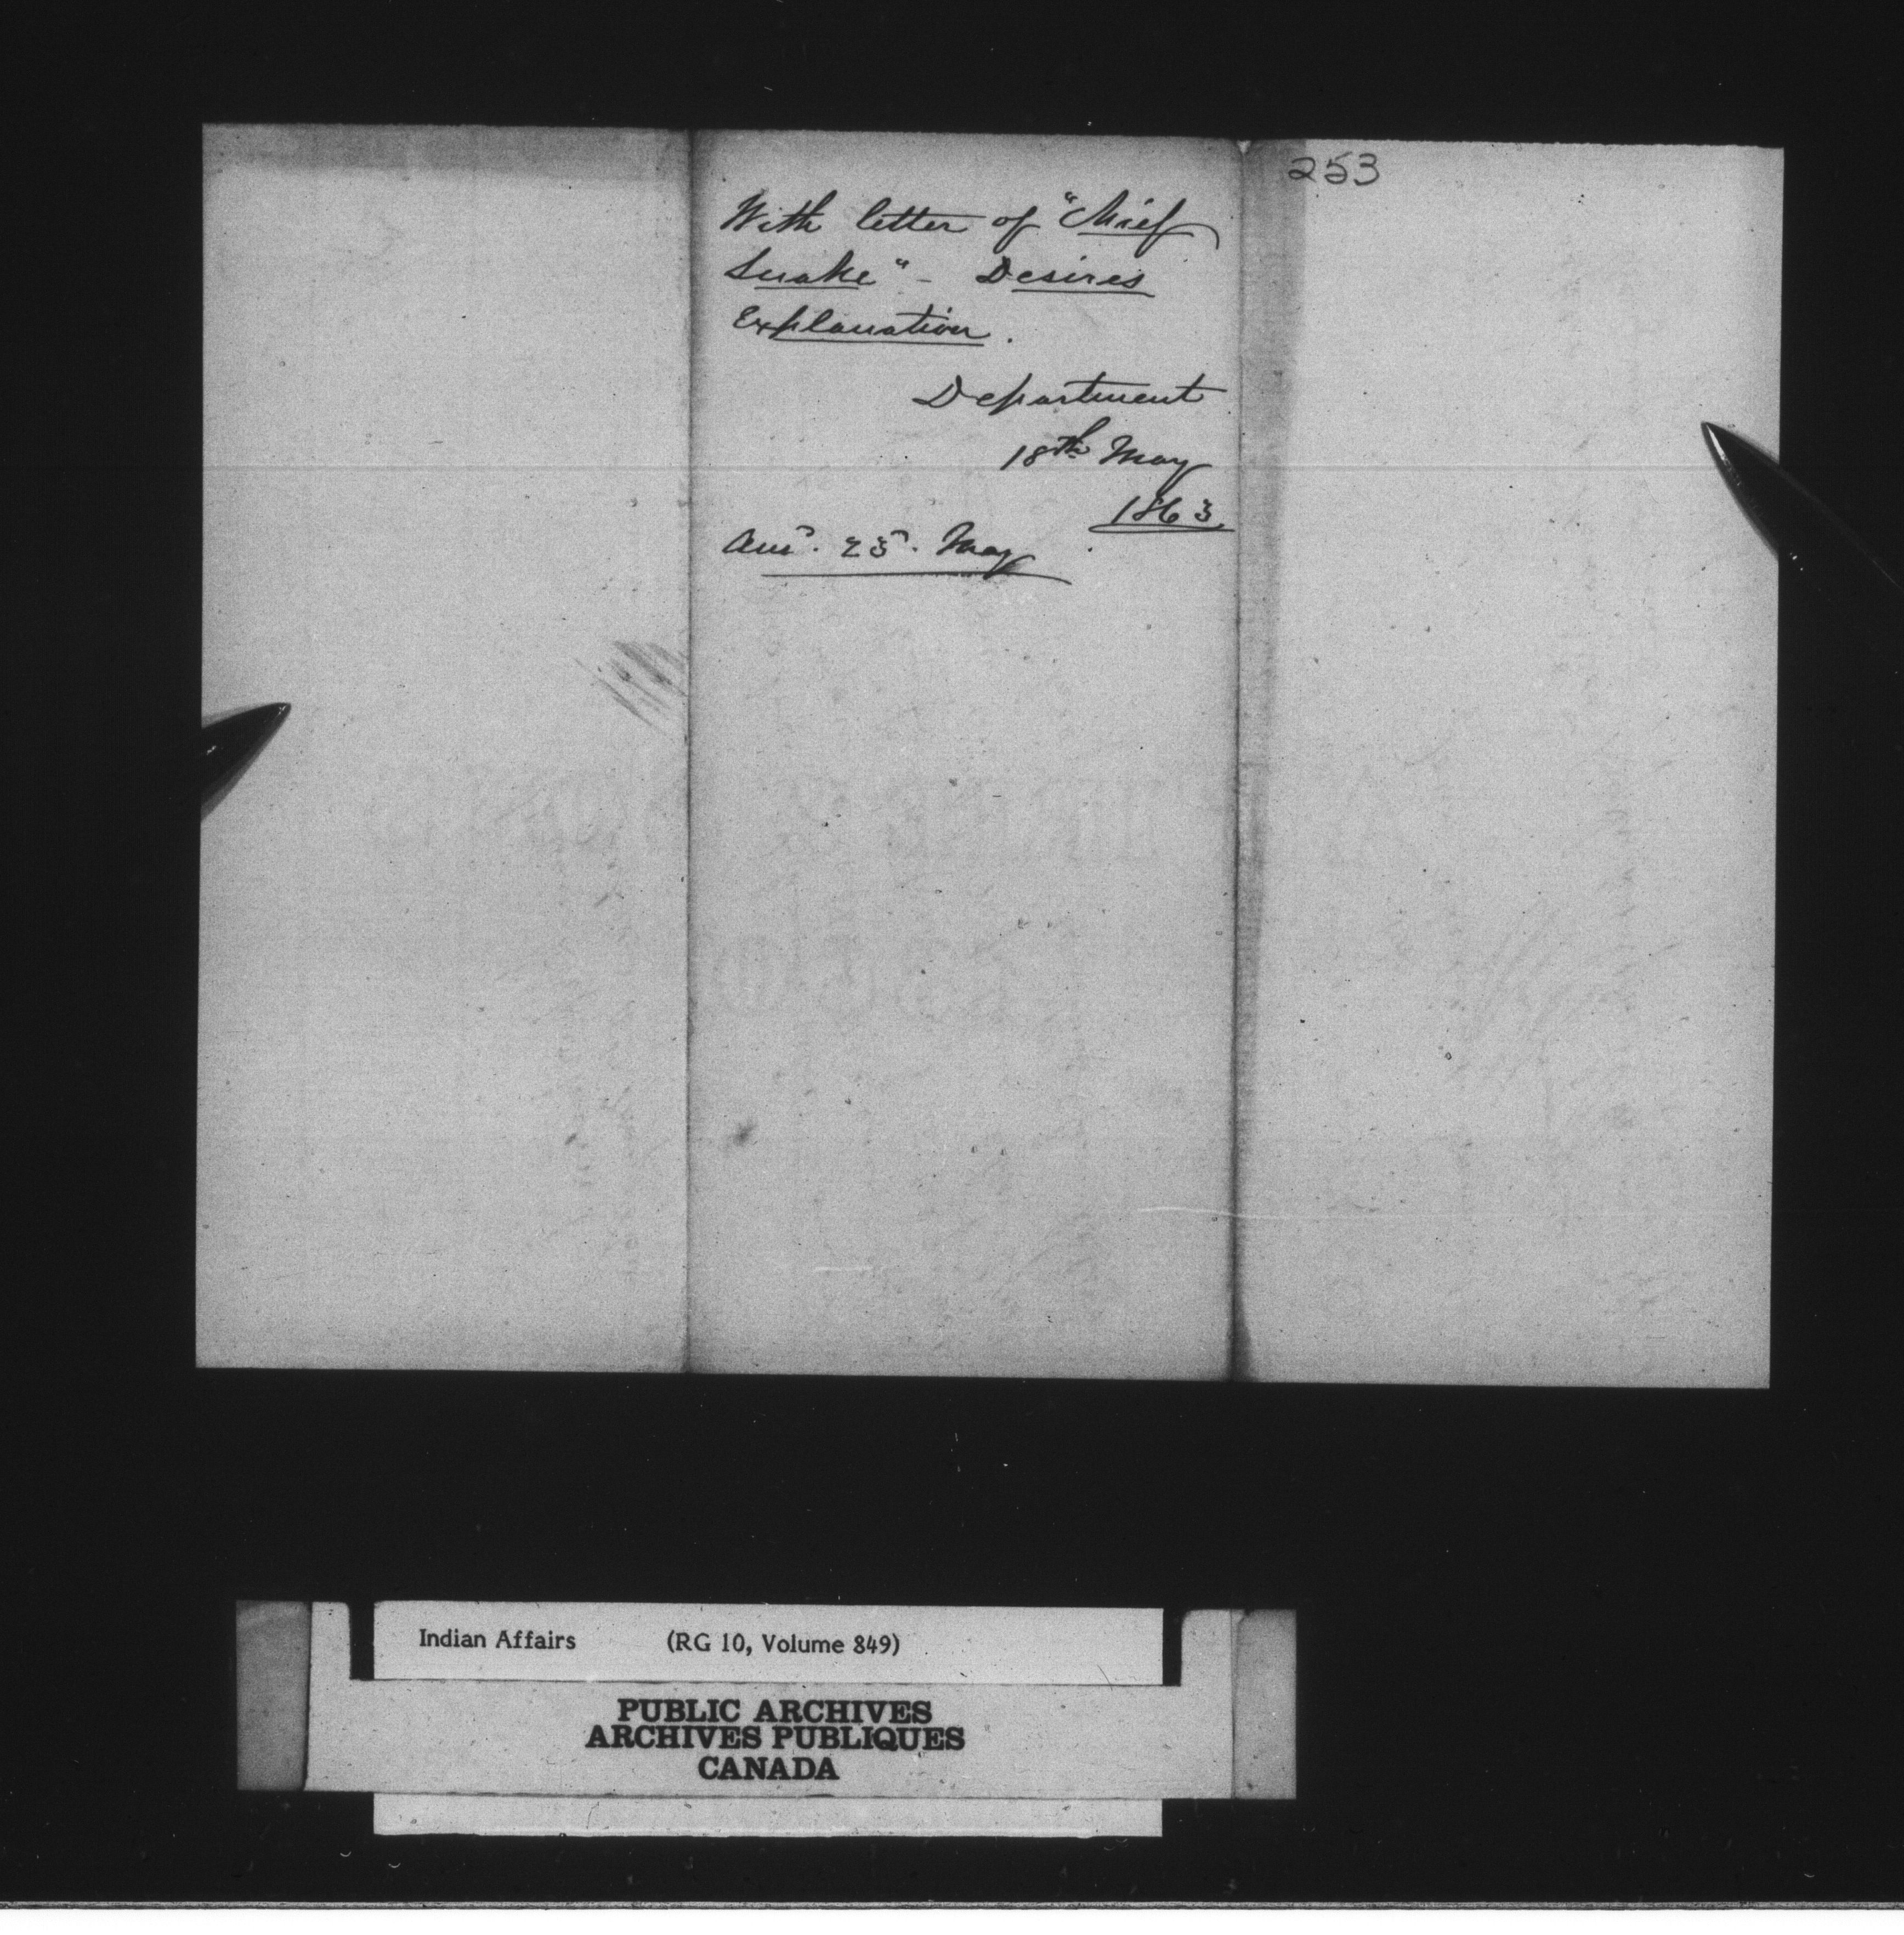 253
With letter of "Chief
Snake" - Desires
Explanation.
Department
18th May
1863.
Ansd. 25. May
Indian Affairs (RG 10, Volume 849)
PUBLIC ARCHIVES
ARCHIVES PUBLIQUES
CANADA